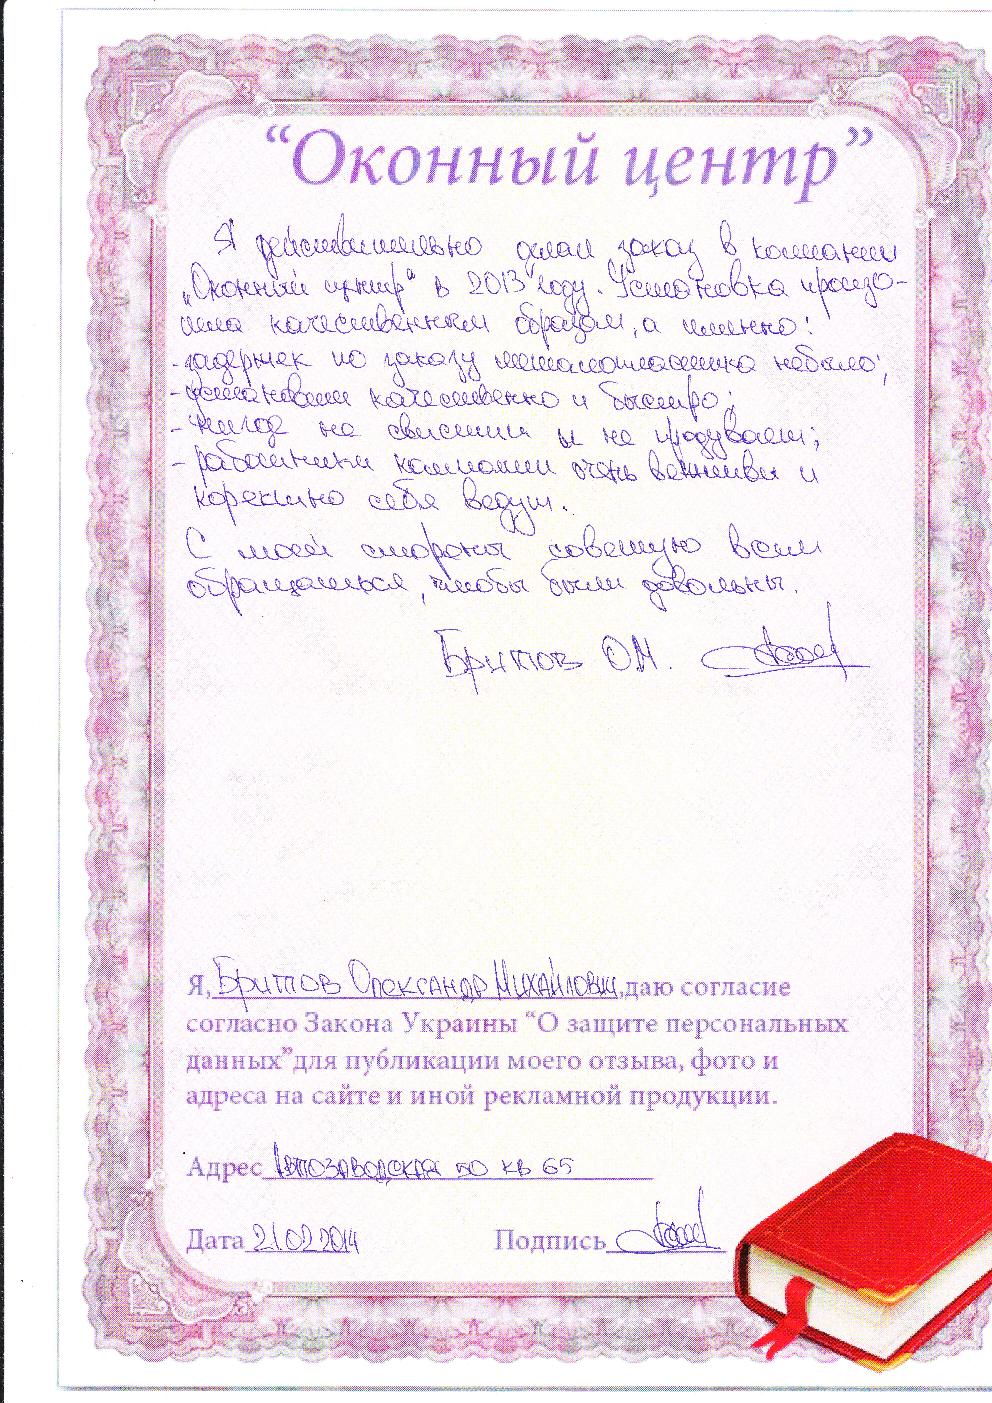 “Оконный центр”
Я действительно делал заказ в компании
„Оконный центр“ в 2013 году. Установка произо-
шла качественным образом, а именно:
- задержек по заказу небыло;
- установили качественно и быстро;
- нигде не свистит и не продувает;
- работники компании очень вежливы и
коректно себя ведут.
С моей стороны советую всем
обращаться, чтобы были довольны.
Бритов О.М.
Я, Бритов Олександр Михайлович, даю согласие
согласно Закона Украины “О защите персональных
данных”для публикации моего отзыва, фото и
адреса на сайте и иной рекламной продукции.
Адрес Автозаводская 50 кв 65
Дата 21 02 2014 Подпись